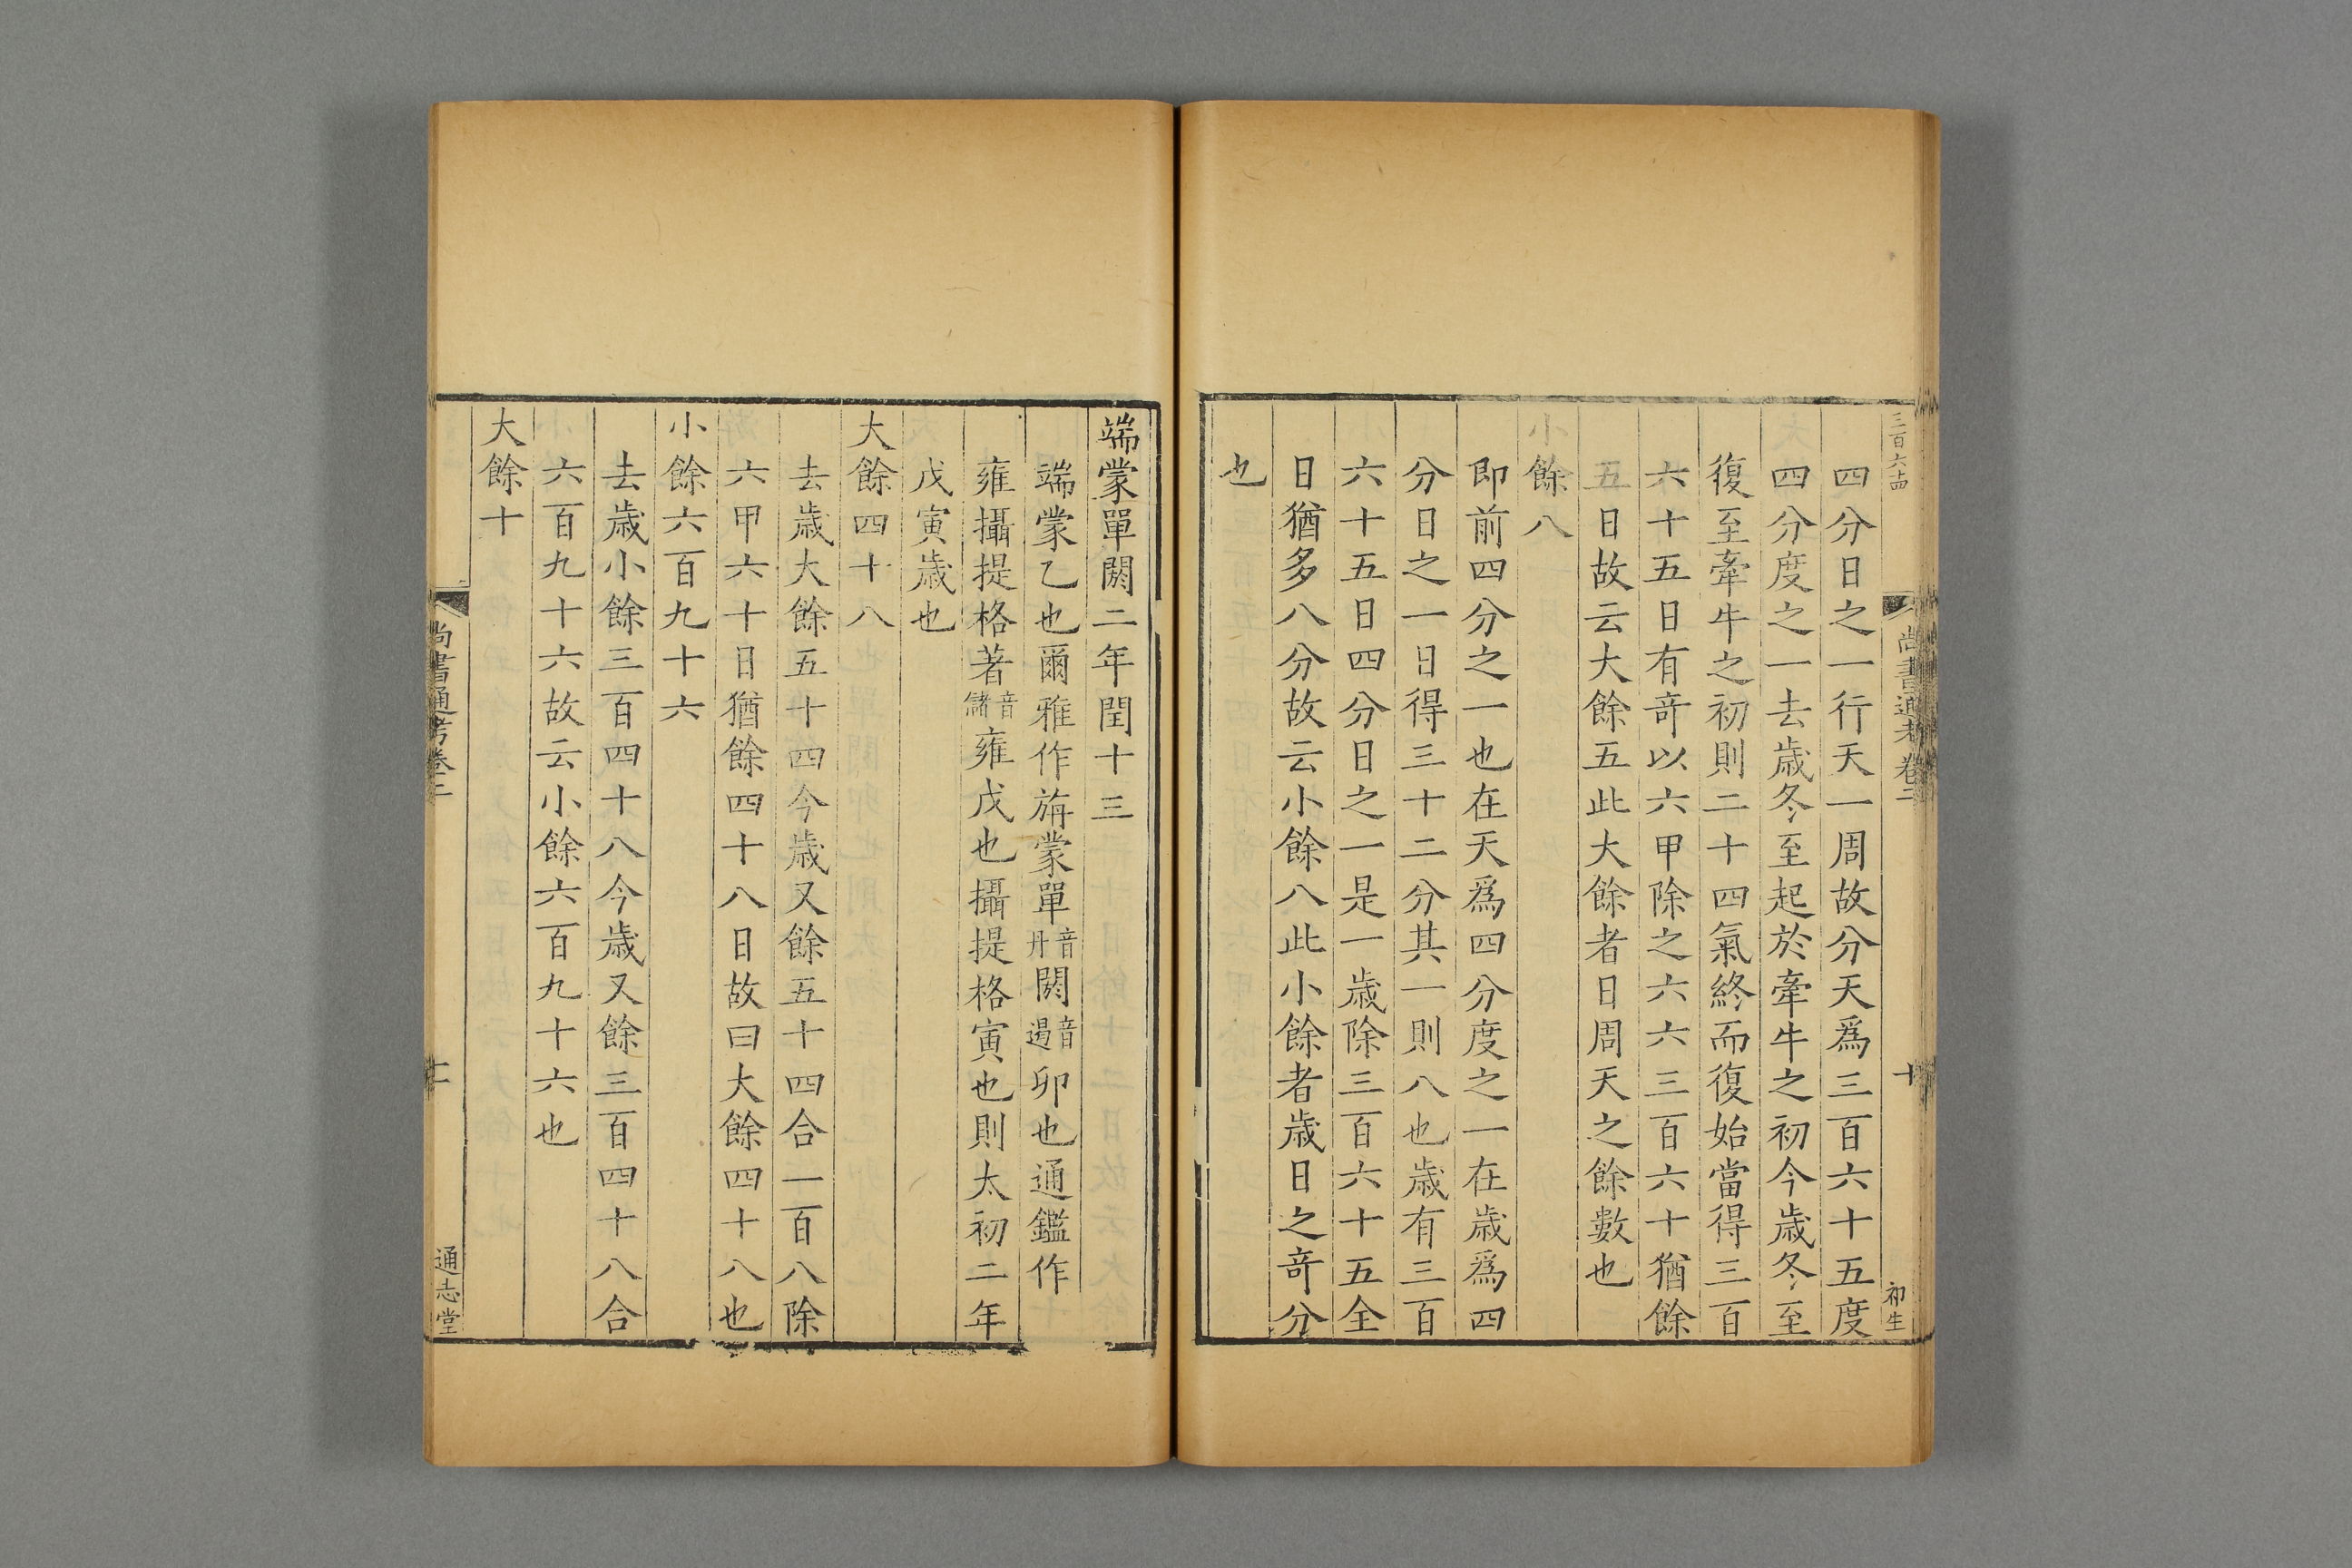 三百六十四
尚書通考卷二
十
初生
四分日之一行天一周故分天爲三百六十五度
四分度之一去歲冬至起於牽牛之初今歲冬至
復至牽牛之初則二十四氣終而復始當得三百
六十五日有奇以六甲除之六六三百六十猶餘
五日故云大餘五此大餘者日周天之餘數也
小餘八
即前四分之一也在天爲四分度之一在歲爲四
分日之一日得三十二分其一則八也歲有三百
六十五日四分日之一是一歲除三百六十五全
日猶多八分故云小餘八此小餘者歲日之奇分
也
端蒙單閼二年閏十三
端蒙乙也爾雅作旃蒙單音丹閼音遏卯也通鑑作
雍攝提格著音儲雍戊也攝提格寅也則太初二年
戊寅歲也
大餘四十八
去歲大餘五十四今歲又餘五十四合一百八除
六甲六十日猶餘四十八日故曰大餘四十八也
小餘六百九十六
去歲小餘三百四十八今歲又餘三百四十八合
六百九十六故云小餘六百九十六也
大餘十
尚書通考卷二
十一
通志堂